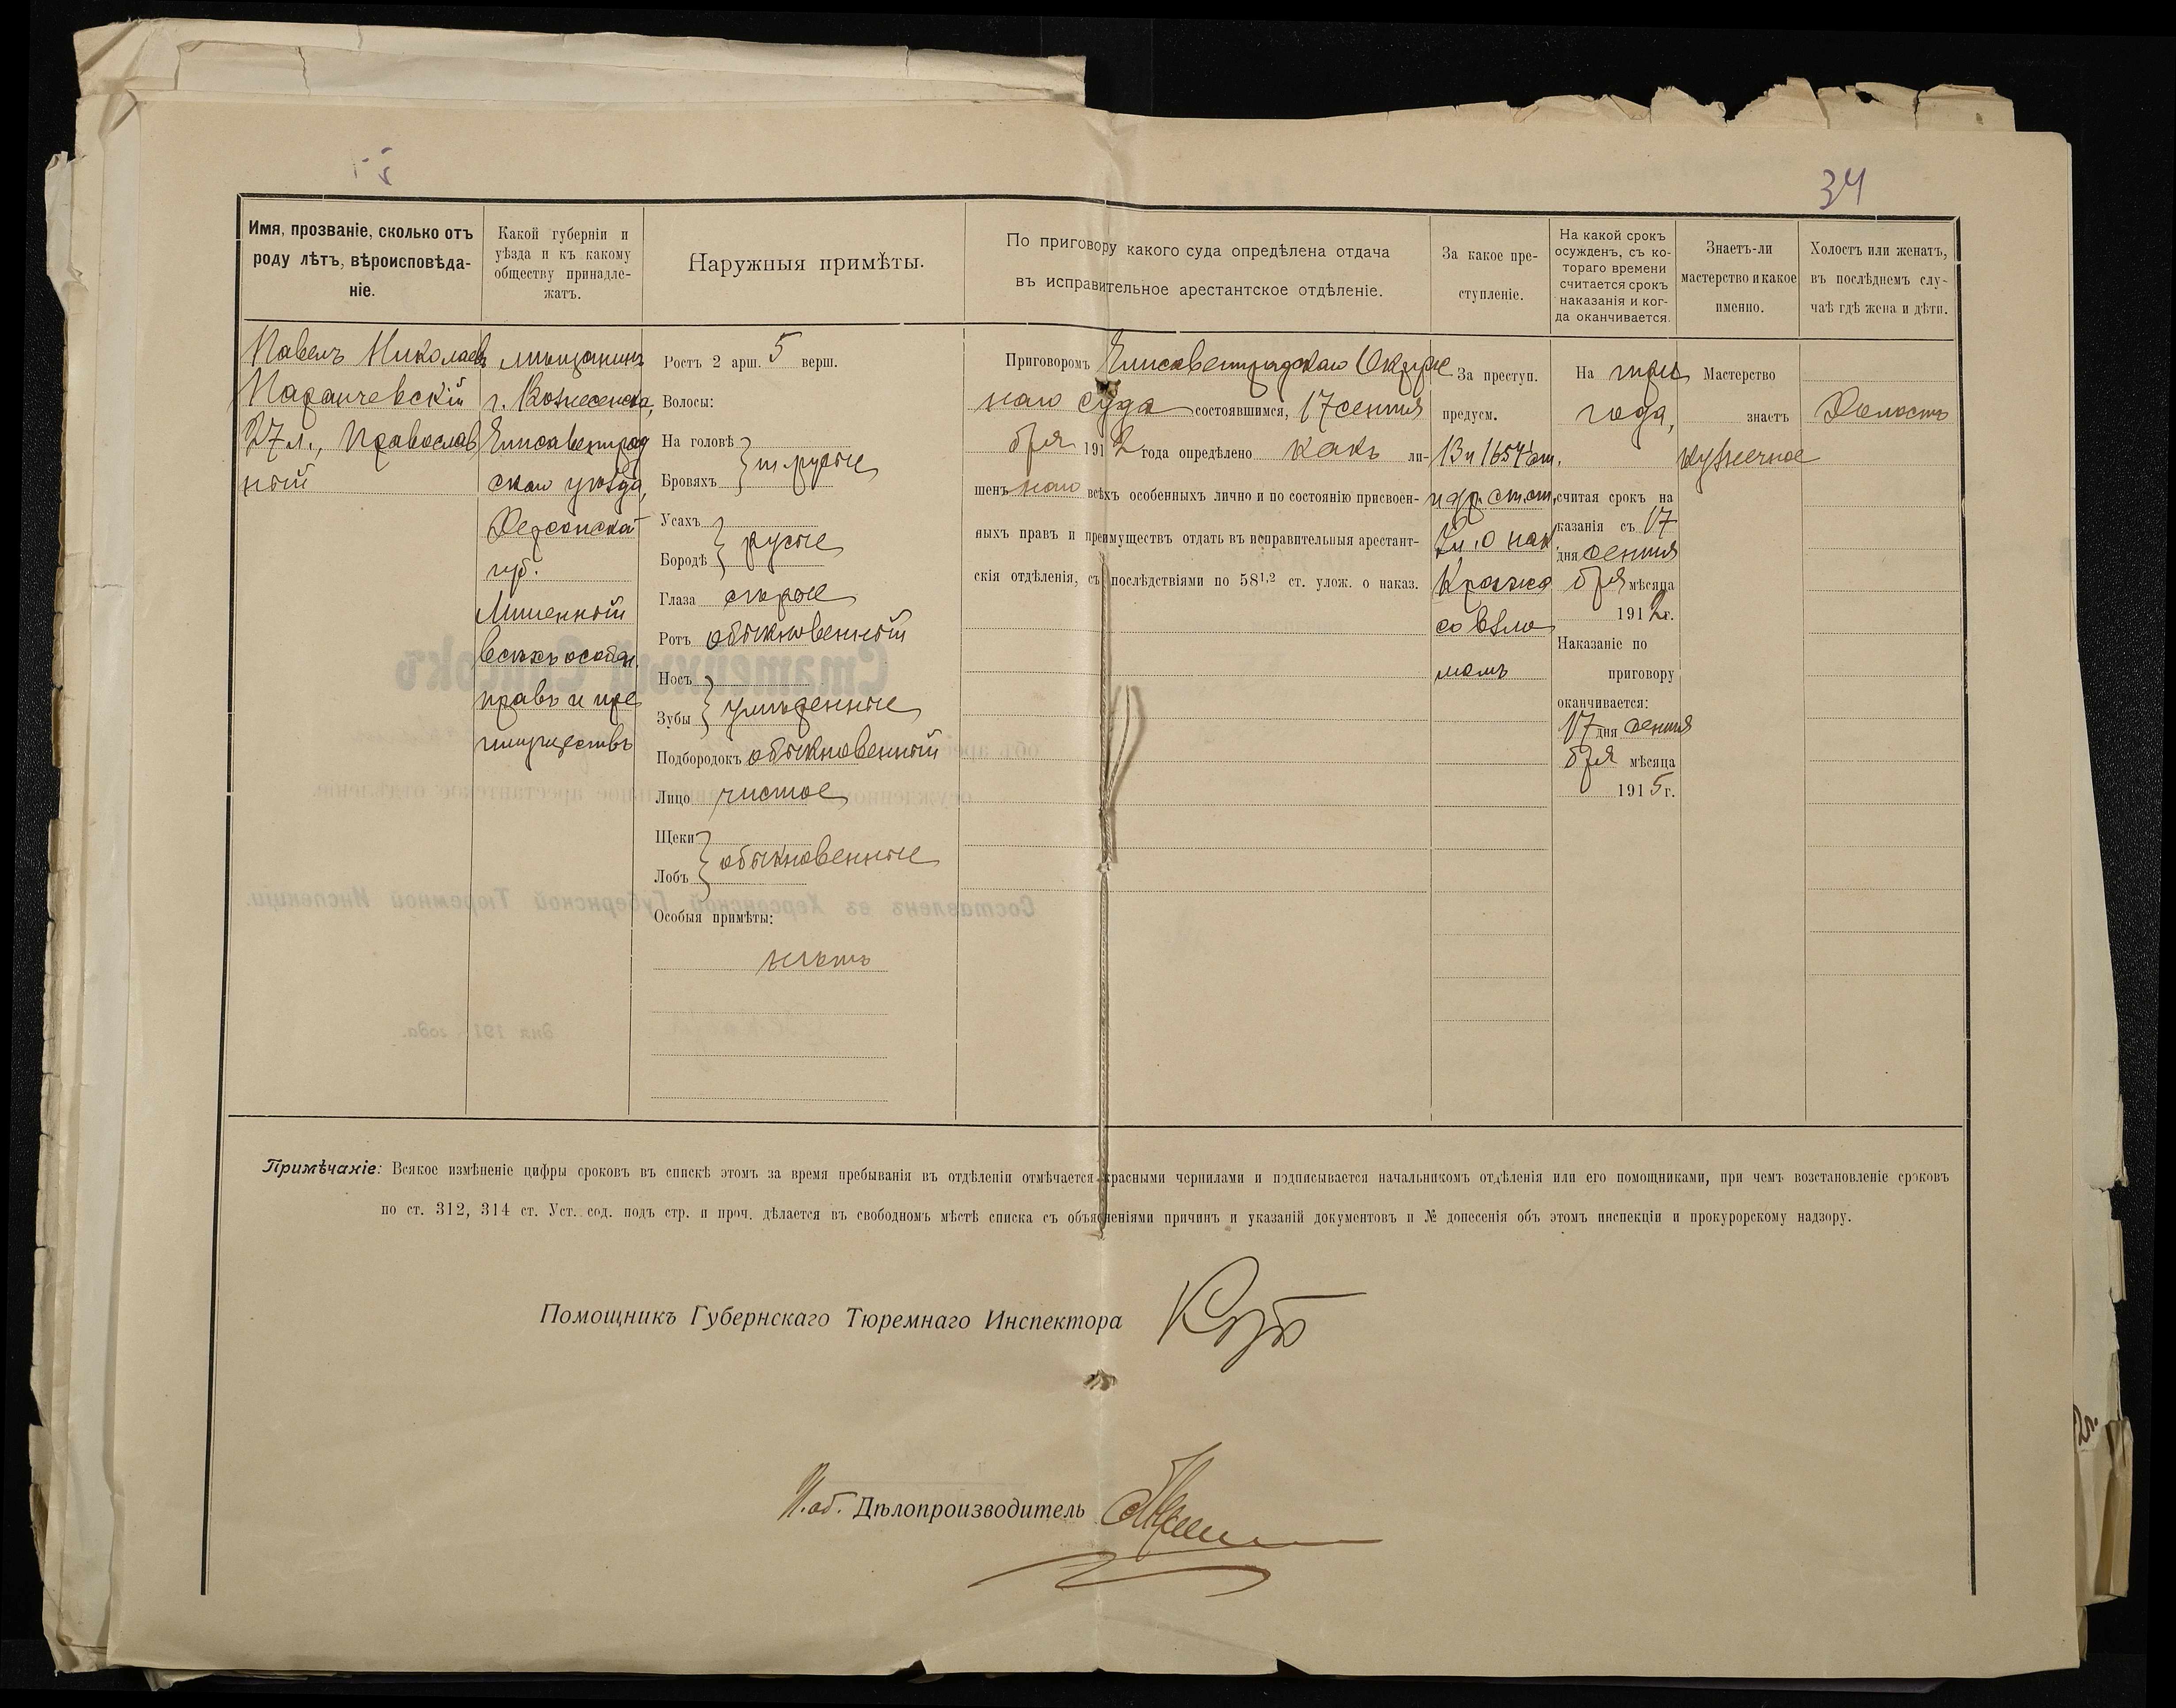 34
Имя, прозваніе, сколько отъ
роду лѣтъ, вѣроисповѣда-
ніе.
Какой губерніи и
уѣзда и къ какому
обществу принадле-
жатъ.
Наружныя примѣты.
По приговору какого суда опредѣлена отдача
въ исправительное арестантское отдѣленіе.
За какое пре-
ступленіе.
На какой срокъ
осужденъ, съ ко-
тораго времени
считается срокъ
наказанія и ког-
да оканчивается.
Знаетъ-ли
мастерство и какое
именно.
Холостъ или женатъ,
въ послѣднемъ слу-
чаѣ гдѣ жена и дѣти.
Павелъ Николаевъ
Параичевскій
27 л., Православ
ный
мѣщанинъ
г. Вознесенска,
Елисаветград
скаго уѣзда,
Херсонской
губ.
Лишенный
всѣхъ особен.
правъ и пре
имуществъ
Ростъ 2 арш. 5 верш.
Волосы:
На головѣ
Бровяхъ } т. русые
Усахъ
Бородѣ } русые
Глаза сѣрые
Ротъ обыкновенный
Носъ
Зубы } умѣренные
Подбородокъ обыкновенный
Лицо чистое
Щеки
Лобъ } обыкновенные
Особыя примѣты:
нѣтъ
Приговоромъ Елисаветградскаго Окруж
наго суда состоявшимся, 17 сентя
бря 1912 года опредѣлено какъ ли-
шеннаго всѣхъ особенныхъ лично и по состоянію присвоен-
ныхъ правъ и преимуществъ отдать въ исправительныя арестант-
скія отдѣленія, съ послѣдствіями по 58¹,² ст. улож. о наказ.
За преступ.
предусм.
13 и 1654¹ ст.
и др. ст. ст.
Ул. о нак.
Кража
со взло
момъ
На три
года,
считая срокъ на
казанія съ 17
дня сентя
бря мѣсяца
1912 г.
Наказаніе по
приговору
оканчивается:
17 дня сентя
бря мѣсяца
1915 г.
Мастерство
знаетъ
кузнечное
Холостъ
Примѣчаніе: Всякое измѣненіе цифры сроковъ въ спискѣ этомъ за время пребыванія въ отдѣленіи отмѣчается красными чернилами и подписывается начальникомъ отдѣленія или его помощниками, при чемъ возстановленіе сроковъ
по ст. 312, 314 ст. Уст. сод. подъ стр. и проч. дѣлается въ свободномъ мѣстѣ списка съ объясненіями причинъ и указаній документовъ и № донесенія объ этомъ инспекціи и прокурорскому надзору.
Помощникъ Губернскаго Тюремнаго Инспектора
И. об. Дѣлопроизводитель